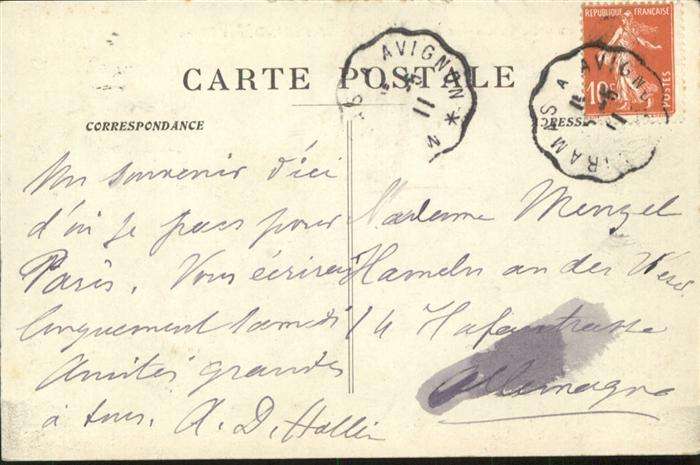 CARTE POSTALE
AVIGNON *
11
RAMAS A AVIGNON
11
REPUBLIQUE FRANÇAISE
10
POSTES
CORRESPONDANCE
Un souvenir d'ici
d'où je pars pour
Paris. Vous écrirai
longuement samedi
Amitiés grandes
à tous. A. D.
Madame Menzel
Hameln an der Weser
14 Hafenstrasse
Allemagne